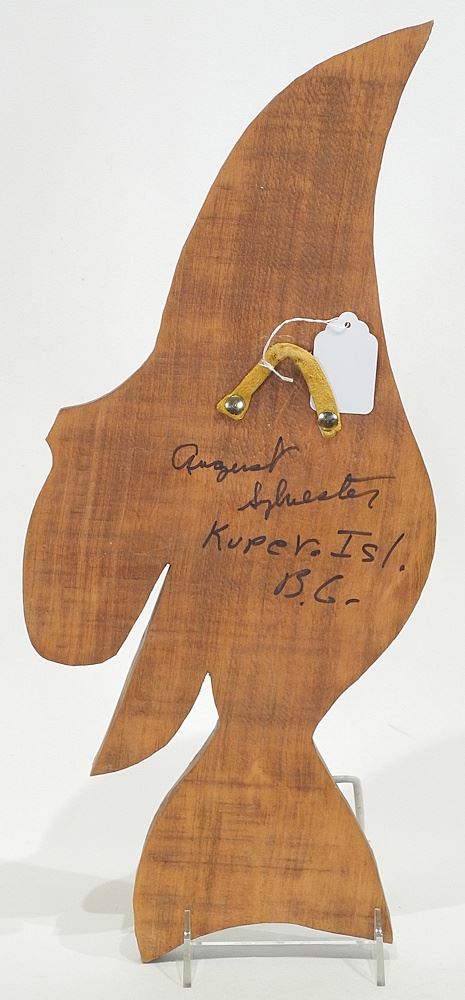 August
Sylvester
Kuper. Isl.
B.C.